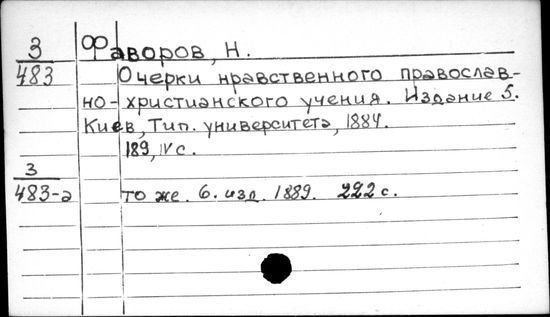 3 Фаворов, Н.
483 Очерки нравственного православ-
но-христианского учения. Издание 5.
Киев, Тип. университета, 1884.
189, IV с.
3
483-а то же. 6. изд. 1889. 222 с.